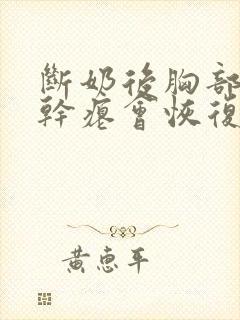 斷奶後胸部
幹癟會恢復
黃惠平